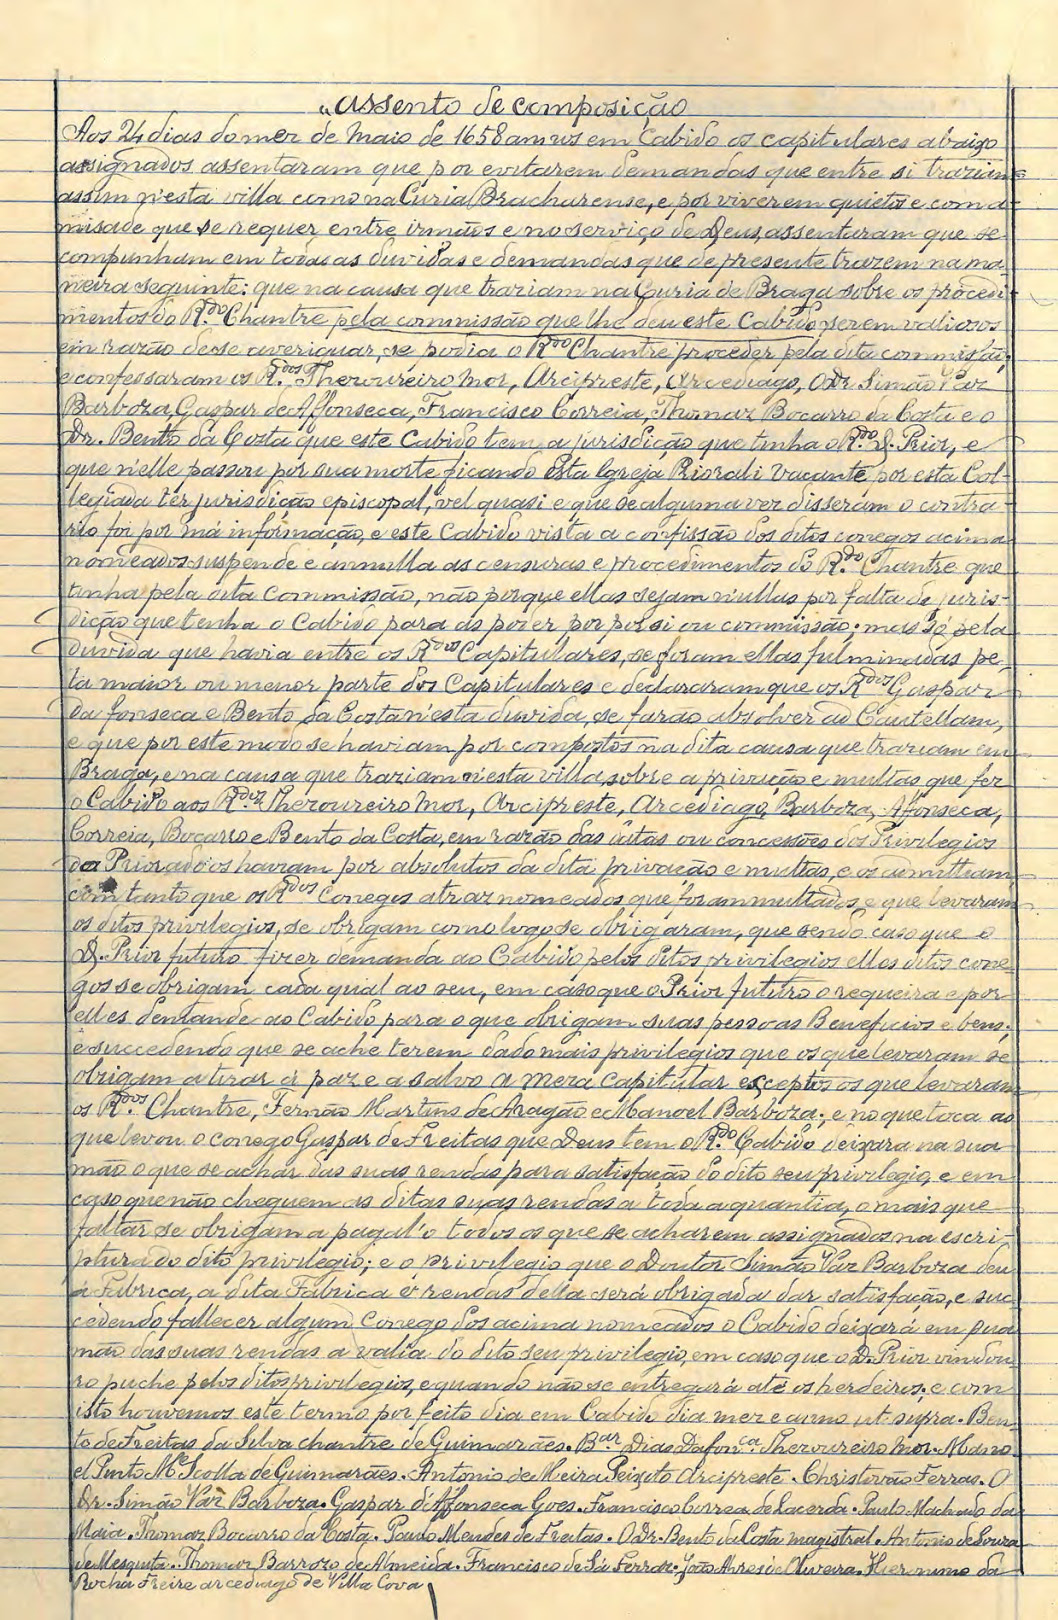 "assento de composição
Aos 24 dias do mez de Maio de 1658 annos em Cabido os capitulares abaixo
assignados assentaram que por evitarem demandas que entre si traziam
assim n'esta villa como na Curia Bracharense, e por viverem quietos e com a-
misade que se requer entre irmãos e no serviço de Deus, assentaram que se
compunham em todas as duvidas e demandas que de presente trazem na ma-
neira seguinte: que na causa que traziam na Curia de Braga sobre os procedi-
mentos do R.do Chantre pela commissão que lhe deu este Cabido, serem valiosos
em razão de se averiguar, se podia o R.do Chantre proceder pela dita commissão,
e confessaram os R.dos Thezoureiro Mor, Arcipreste, Arcediago, O Dr. Simão Vaz
Barboza, Gaspar de Affonseca, Francisco Correia, Thomaz Bocarro da Costa e o
Dr. Bento da Costa que este Cabido tem a jurisdição que tinha o R.do D. Prior, e
que n'elle passou por sua morte ficando esta Igreja Priorali vacante por esta Col-
legiada ter jurisdição episcopal, vel quasi e que se alguma vez disseram o contra-
rio foi por má informação, e este Cabido vista a confissão dos ditos conegos acima
nomeados suspende e annulla as censuras e procedimentos do R.do Chantre que
tinha pela dita commissão, não porque ellas sejam nullas por falta de juris-
dição que tenha o Cabido para as poder por por si ou commissão; mas só pela
duvida que havia entre os R.dos Capitulares, se foram ellas fulminadas pe-
la maior ou menor parte dos Capitulares e declararam que os R.dos Gaspar
da fonseca e Bento da Costa n'esta duvida, se farão absolver ad Cautellam,
e que por este modo se haviam por compostos na dita causa que traziam em
Braga, e na causa que traziam n'esta villa, sobre a privação e multas que fez
o Cabido aos R.dos Thezoureiro Mor, Arcipreste, Arcediago, Barboza, Affonseca,
Correia, Bocarro e Bento da Costa, em razão das ditas ou concessões dos Privilegios
do Priorado os haviam por absolutos da dita privação e multas, e os admittiam,
com tanto que os R.dos Conegos atraz nomeados que foram multados, e que levaram
os ditos privilegios, se obrigam como logo se obrigaram, que sendo caso que o
D. Prior futuro fizer demanda ao Cabido pelos ditos privilegios elles ditos cone-
gos se obrigam cada qual ao seu, em caso que o Prior futuro o requeira e por
elles demande ao Cabido para o que obrigam suas pessoas Beneficios e bens;
e succedendo que se ache terem dado mais privilegios que os que levaram se
obrigam a tirar a paz e a salvo a meza capitular exceptos os que levaram
os R.dos Chantre, Fernão Martins de Aragão e Manoel Barboza; e no que toca ao
que levou o conego Gaspar de Freitas que Deus tem o R.do Cabido deixara na sua
mão o que se achar das suas rendas para satisfação do dito seu privilegio, e em
caso que não cheguem as ditas suas rendas a toda a quantia, o mais que
faltar se obrigam a pagal'o todos os que se acharem assignados na escri-
ptura do dito privilegio; e o privilegio que o Doutor Simão Vaz Barboza deu
á Fabrica, a dita Fabrica e rendas della será obrigada dar satisfação, e suc-
cedendo fallecer algum Conego dos acima nomeados o Cabido deixará em sua
mão das suas rendas a valia do dito seu privilegio, em caso que o D. Prior vindou-
ro puche pelos ditos privilegios, e quando não se entregará até os herdeiros; e com
isto houvemos este termo por feito dia em Cabido dia mez e anno ut supra. Ben-
to de Freitas da Silva chantre de Guimarães. B.ar Dias Dafon.ca Thezoureiro Mor. Mano-
el Pinto M.e Scolla de Guimarães. Antonio de Meira Peixoto Arcipreste. Christovão Ferras. O
Dr. Simão Vaz Barboza. Gaspar d'Affonseca Goes. Francisco Correa de Lacerda. Paulo Machado da
Maia. Thomaz Bocarro da Costa. Paulo Mendes de Freitas. O Dr. Bento da Costa magistral. Antonio de Souza
de Mesquita. Thomaz Barrozo de Almeida. Francisco de Sá Ferraz. João de Oliveira. Hieronimo da
Rocha Freire arcediago de Villa Cova